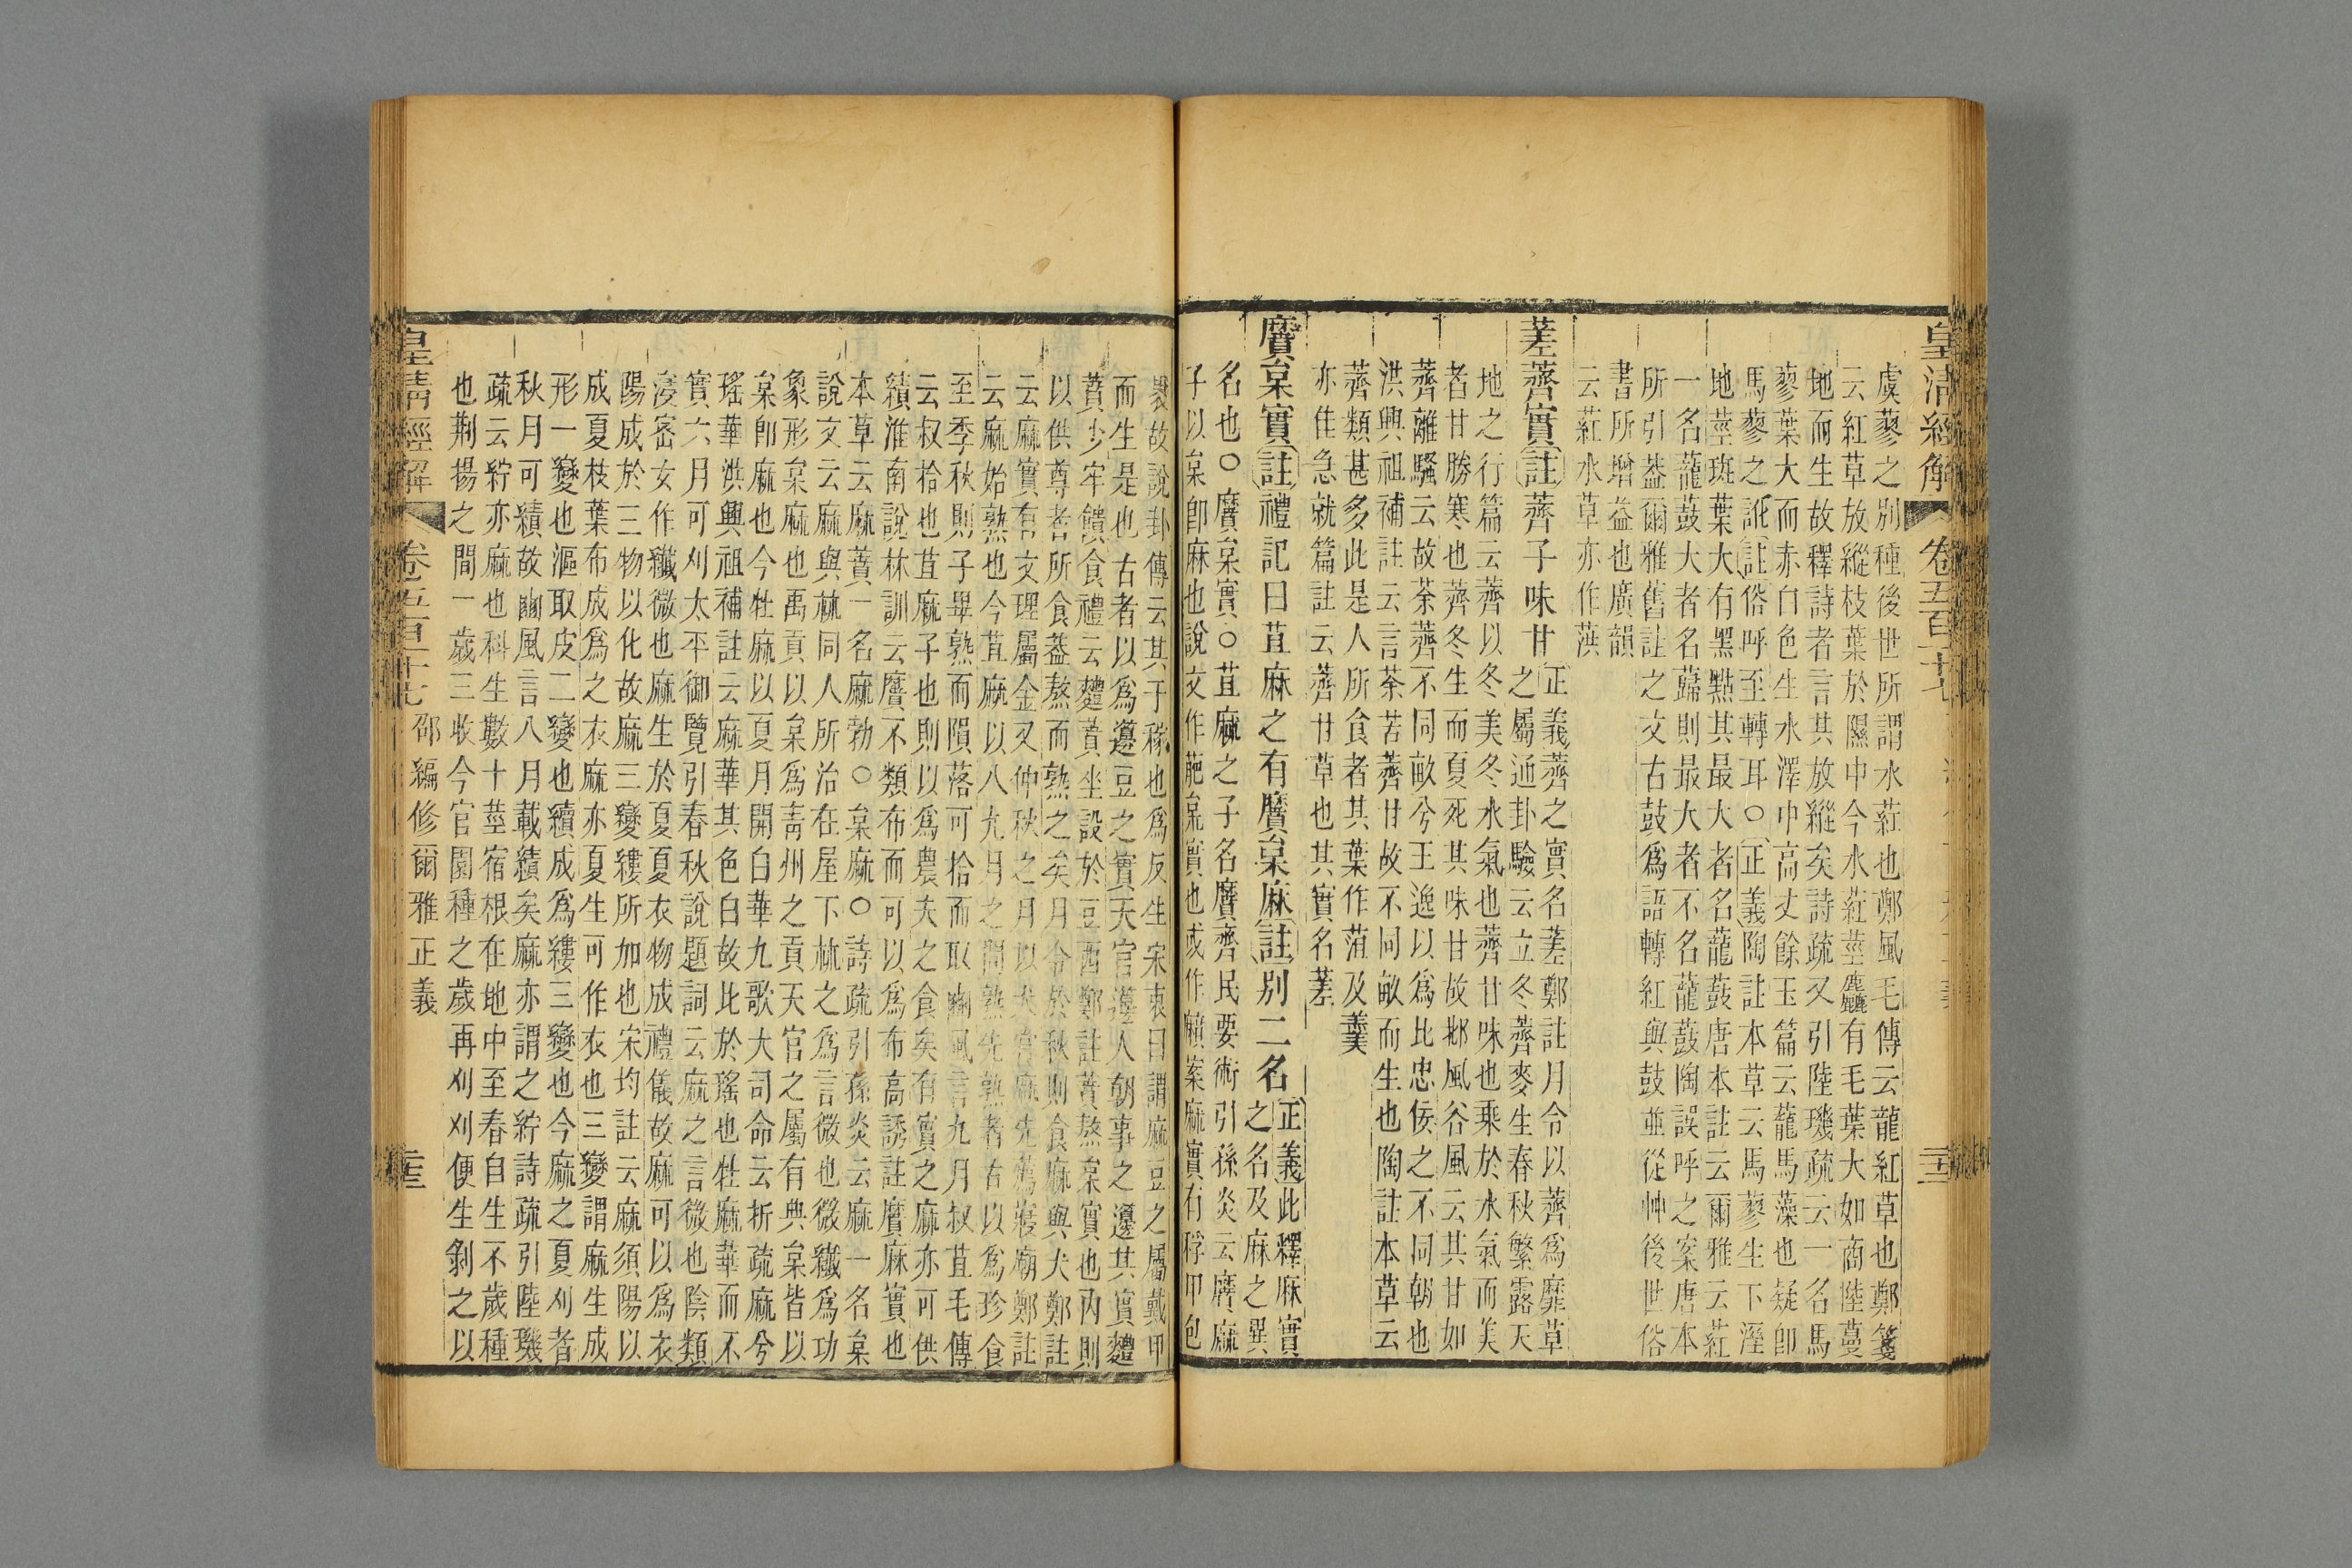 皇清經解 卷五百二十七
虞蓼之別種後世所謂水葒也鄭風毛傳云龍紅草也鄭箋
云紅草放縱枝葉於隰中今水葒莖麤有毛葉大如商陸蔓
地而生故釋詩者言其放縱矣詩疏又引陸璣疏云一名馬
蓼葉大而赤白色生水澤中高丈餘玉篇云蘢馬藻也疑卽
馬蓼之訛註俗呼至轉耳○正義陶註本草云馬蓼生下溼
地莖斑葉大有黑點其最大者名蘢薣唐本註云爾雅云葒
一名蘢薣大者名蘬則最大者不名蘢薣陶誤呼之案唐本
所引葢爾雅舊註之文古鼓爲語轉紅與鼓並從艸後世俗
書所增益也廣韻
云葒水草亦作葓
蒫薺實註薺子味甘正義薺之實名蒫鄭註月令以薺爲靡草
之屬通卦驗云立冬薺麥生春秋繁露天
地之行篇云薺以冬美冬水氣也薺甘味也乘於水氣而美
者甘勝寒也薺冬生而夏死其味甘故邶風谷風云其甘如
薺離騷云故荼薺不同畝兮王逸以爲比忠佞之不同朝也
洪興祖補註云言荼苦薺甘故不同畝而生也陶註本草云
薺類甚多此是人所食者其葉作菹及羹
亦佳急就篇註云薺甘草也其實名蒫
黂枲實註禮記曰苴麻之有黂枲麻註別二名正義此釋麻實
之名及麻之異
名也○黂枲實○苴麻之子名黂齊民要術引孫炎云黂麻
子以枲卽麻也說文作萉枲實也或作𪎰案麻實有稃甲包
裹故說卦傳云其于稼也爲反生宋衷曰謂麻豆之屬戴甲
而生是也古者以爲籩豆之實天官籩人朝事之籩其實麷
蕡少牢饋食禮云麷蕡坐設於豆西鄭註蕡熬枲實也內則
以供尊者所食葢熬而熟之矣月令於秋則食麻與犬鄭註
云麻實有文理屬金又仲秋之月以犬嘗麻先薦寢廟鄭註
云麻始熟也今苴麻以八九月之間熟先熟者古以爲珍食
至季秋則子畢熟而隕落可拾而取豳風言九月叔苴毛傳
云叔拾也苴麻子也則以爲農夫之食矣有實之麻亦可供
績淮南說林訓云黂不類布而可以爲布高誘註黂麻實也
本草云麻蕡一名麻勃○枲麻○詩疏引孫炎云麻一名枲
說文云麻與𣏟同人所治在屋下𣏟之爲言微也微纖爲功
象形枲麻也禹貢以枲爲靑州之貢天官之屬有典枲皆以
枲卽麻也今牡麻以夏月開白華九歌大司命云折疏麻兮
瑤華洪興祖補註云麻華其色白故比於瑤也牡麻華而不
實六月可刈太平御覽引春秋說題詞云麻之言微也陰類
寖密女作纖微也麻生於夏夏衣物成禮儀故麻可以爲衣
陽成於三物以化故麻三變縷所加也宋均註云麻須陽以
成夏枝葉布成爲之衣麻亦夏生可作衣也三變謂麻生成
形一變也漚取皮二變也績成爲縷三變也今麻之夏刈者
秋月可績故豳風言八月載績矣麻亦謂之紵詩疏引陸璣
疏云紵亦麻也科生數十莖宿根在地中至春自生不歲種
也荆揚之間一歲三收今官園種之歲再刈刈便生剝之以
皇清經解 卷五百二十七 邵編修爾雅正義 三